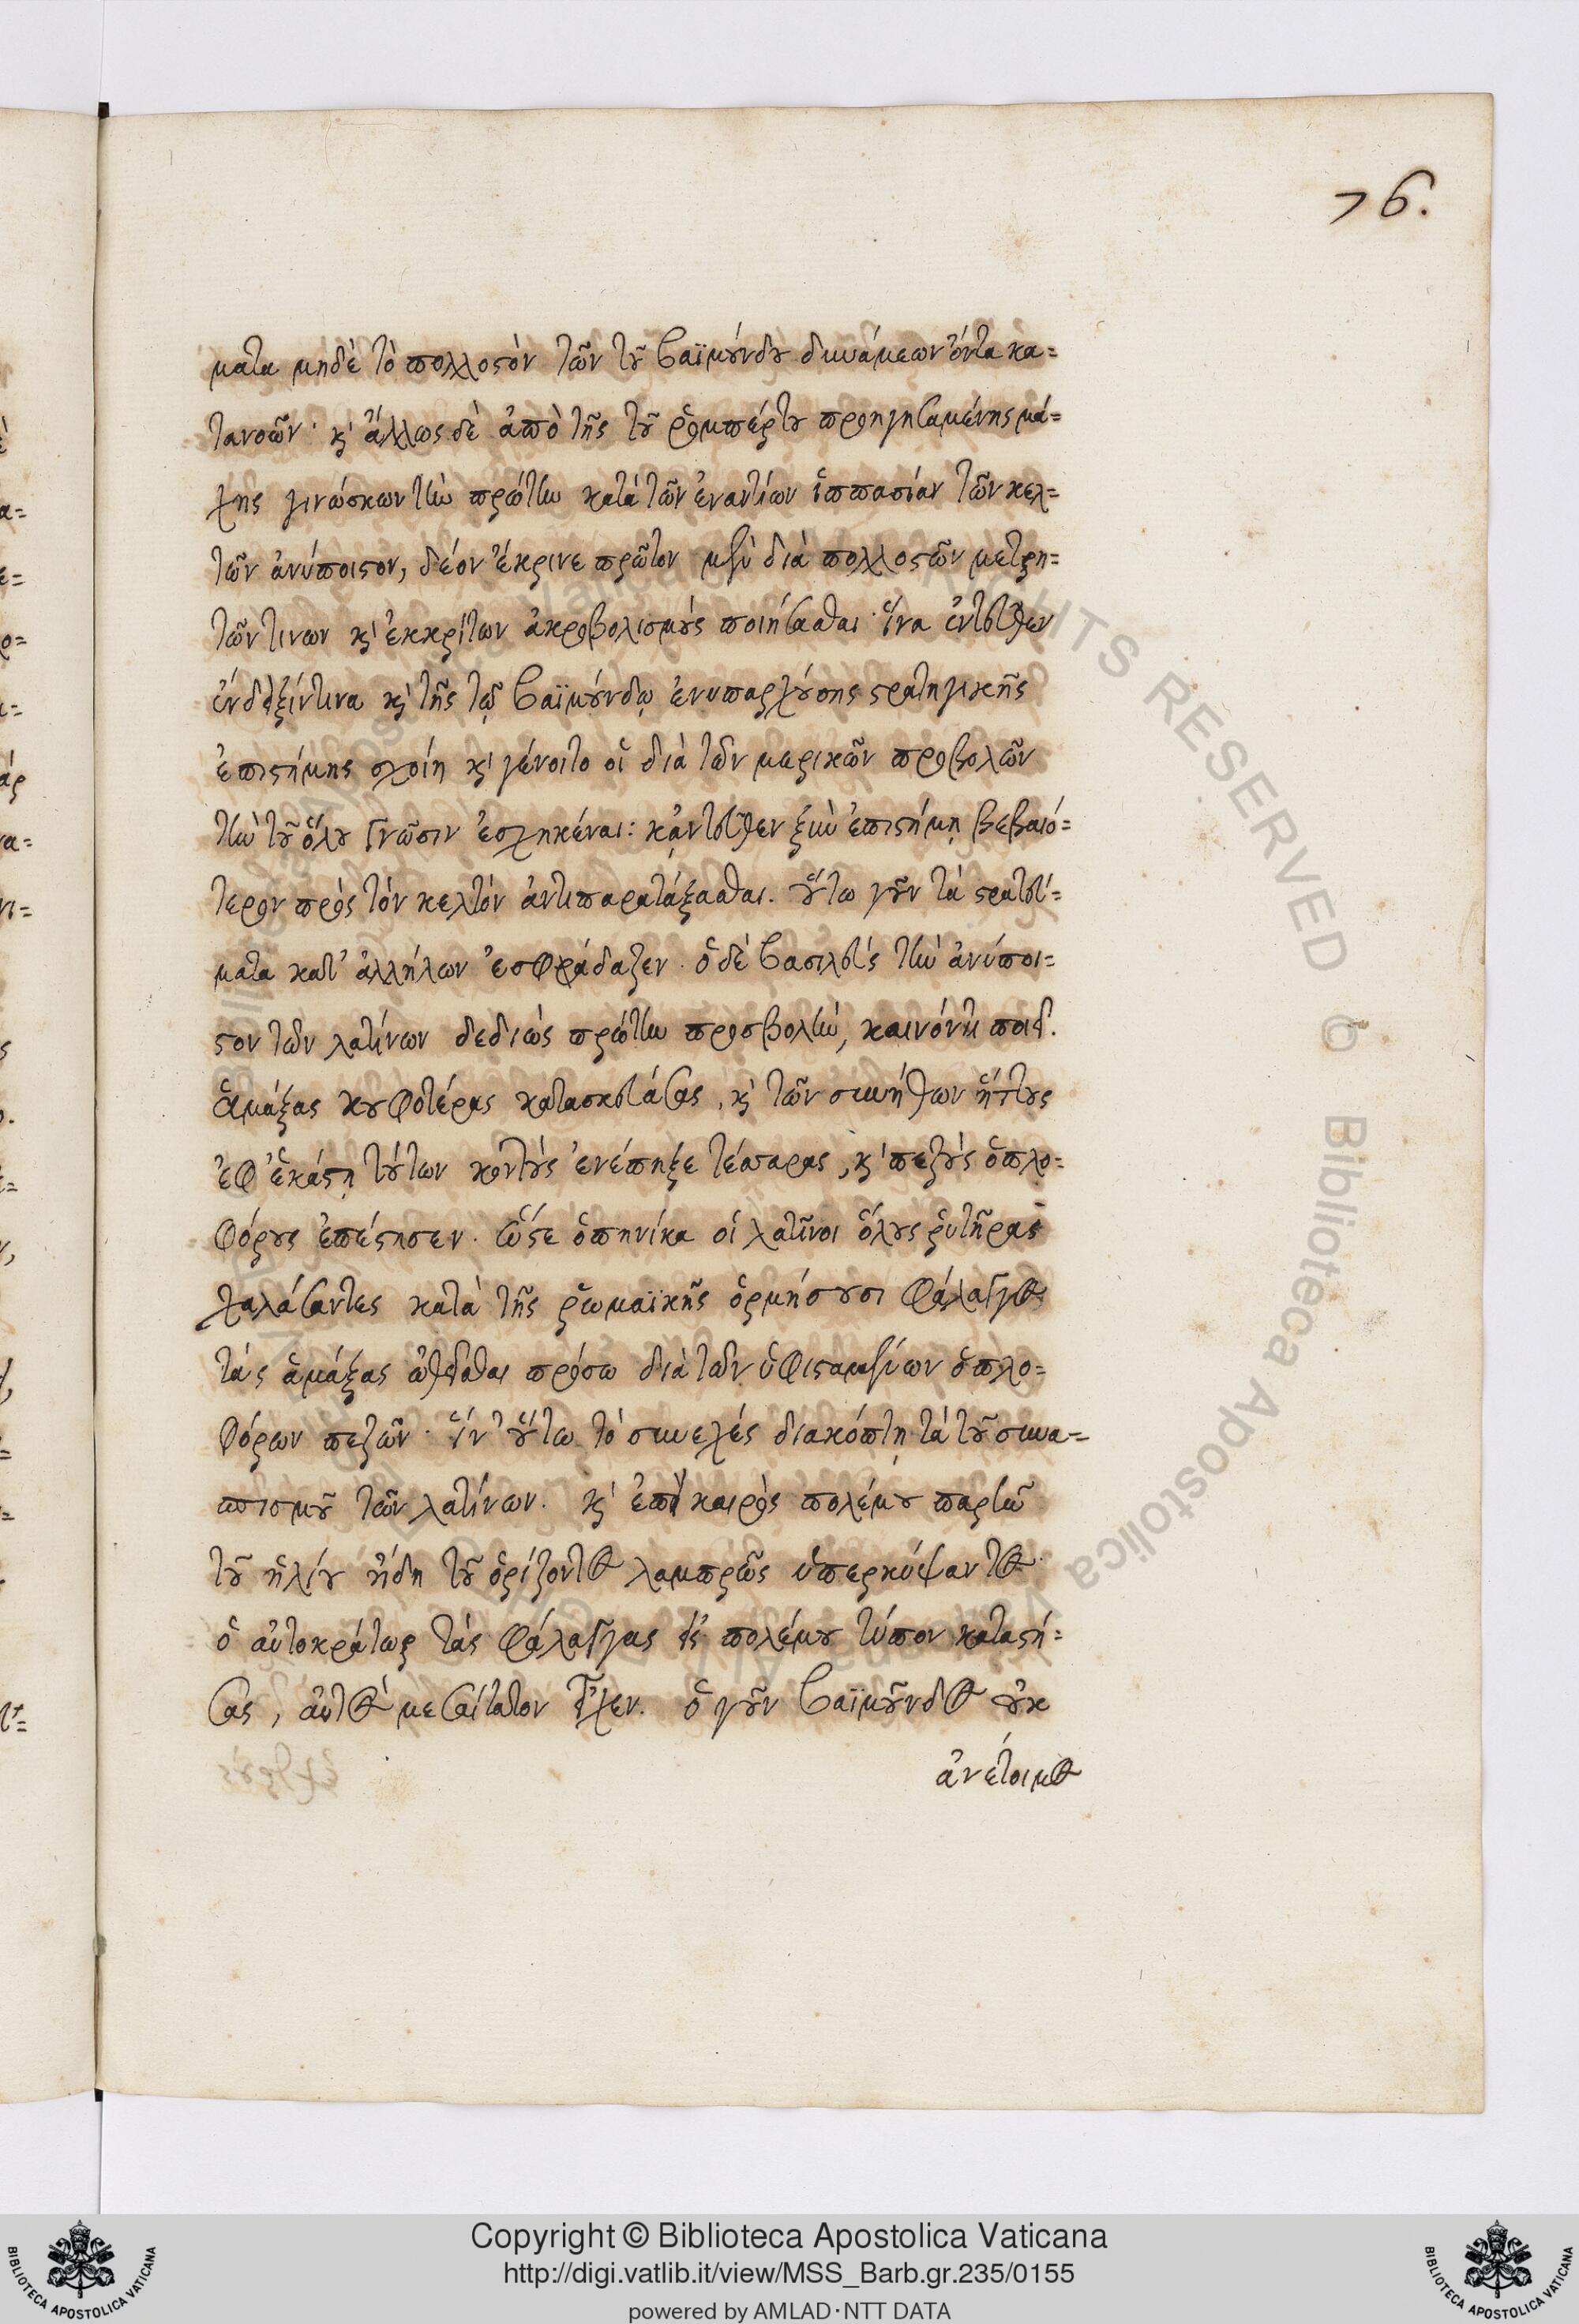 76.
ματα μηδὲ τὸ πολλοστὸν τῶν τοῦ βαϊμούνδου δυνάμεων ὄντα κα=
τανοῶν· κ᾽ ἄλλως δὲ ἀπὸ τῆς τοῦ ῥομπέρτου προηγησαμένης μά=
χης γινώσκων τὴν πρώτην κατὰ τῶν ἐναντίων ἱππασίαν τῶν κελ=
τῶν ἀνύποιστον, δέον ἔκρινε πρῶτον μὲν διὰ πολλοστῶν μετρη=
τῶν τινων κ᾽ ἐκκρίτων ἀκροβολισμοὺς ποιήσασθαι· ἵνα ἐντεῦθεν
ἔνδειξίν τινα κ᾽ τῆς τῷ βαϊμούνδῳ ἐνυπαρχούσης στρατηγικῆς
ἐπιστήμης σχοίη κ᾽ γένοιτο οἷ διὰ τῶν μερικῶν προβολῶν
τὴν τοῦ ὅλου γνῶσιν ἐσχηκέναι: κᾀντεῦθεν ξὺν ἐπιστήμῃ βεβαιό=
τερον πρὸς τὸν κελτὸν ἀντιπαρατάξασθαι. οὕτω γοῦν τὰ στρατεύ=
ματα κατ᾽ ἀλλήλων ἐσφράδαζεν· ὁ δὲ βασιλεὺς τὴν ἀνύποι=
στον τῶν λατίνων δεδιὼς πρώτην προσβολὴν, καινόν τι ποιεῖ.
ἁμάξας κουφοτέρας κατασκευάσας, κ᾽ τῶν συνήθων ἥττους
ἐφ ἑκάστῃ τούτων κοντοὺς ἐνέπηξε τέσσαρας, κ᾽ πεζοὺς ὁπλο=
φόρους ἐπέστησεν. ὥστε ὁπηνίκα οἱ λατῖνοι ὅλους ῥυτῆρας
χαλάσαντες κατὰ τῆς ῥωμαϊκῆς ὁρμήσουσι φάλαγγος
τὰς ἁμάξας ὠθεῖσθαι πρόσω διὰ τῶν ὑφισταμένων ὁπλο=
φόρων πεζῶν· ἵν᾽ οὕτω τὸ συνεχές διακόπτῃ τὰ τοῦ συνα=
σπισμοῦ τῶν λατίνων. κ᾽ ἐπεὶ καιρὸς πολέμου παρῆν
τοῦ ἡλίου ἤδη τοῦ ὁρίζοντος λαμπρῶς ὑπερκύψαντος·
ὁ αὐτοκράτωρ τὰς φάλαγγας εἰς πολέμου τύπον καταστή=
σας, αὐτὸς μεσαίτατον εἶχεν. ὁ γοῦν βαϊμοῦνδος οὐκ
ἀνέτοιμος
Copyright © Biblioteca Apostolica Vaticana
http://digi.vatlib.it/view/MSS_Barb.gr.235/0155
powered by AMLAD·NTT DATA